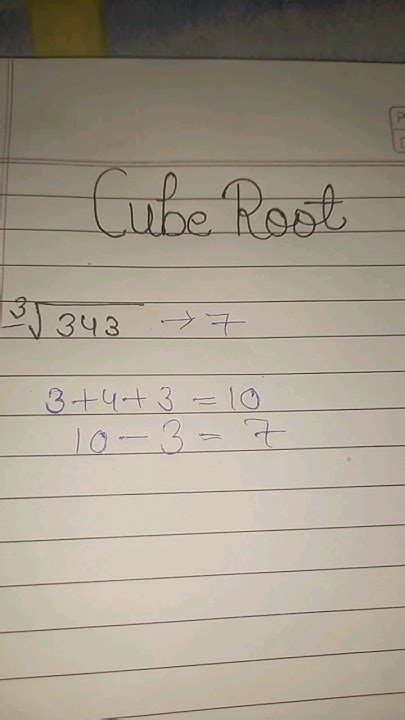 Cube Root
∛343 → 7
3+4+3 = 10
10 - 3 = 7